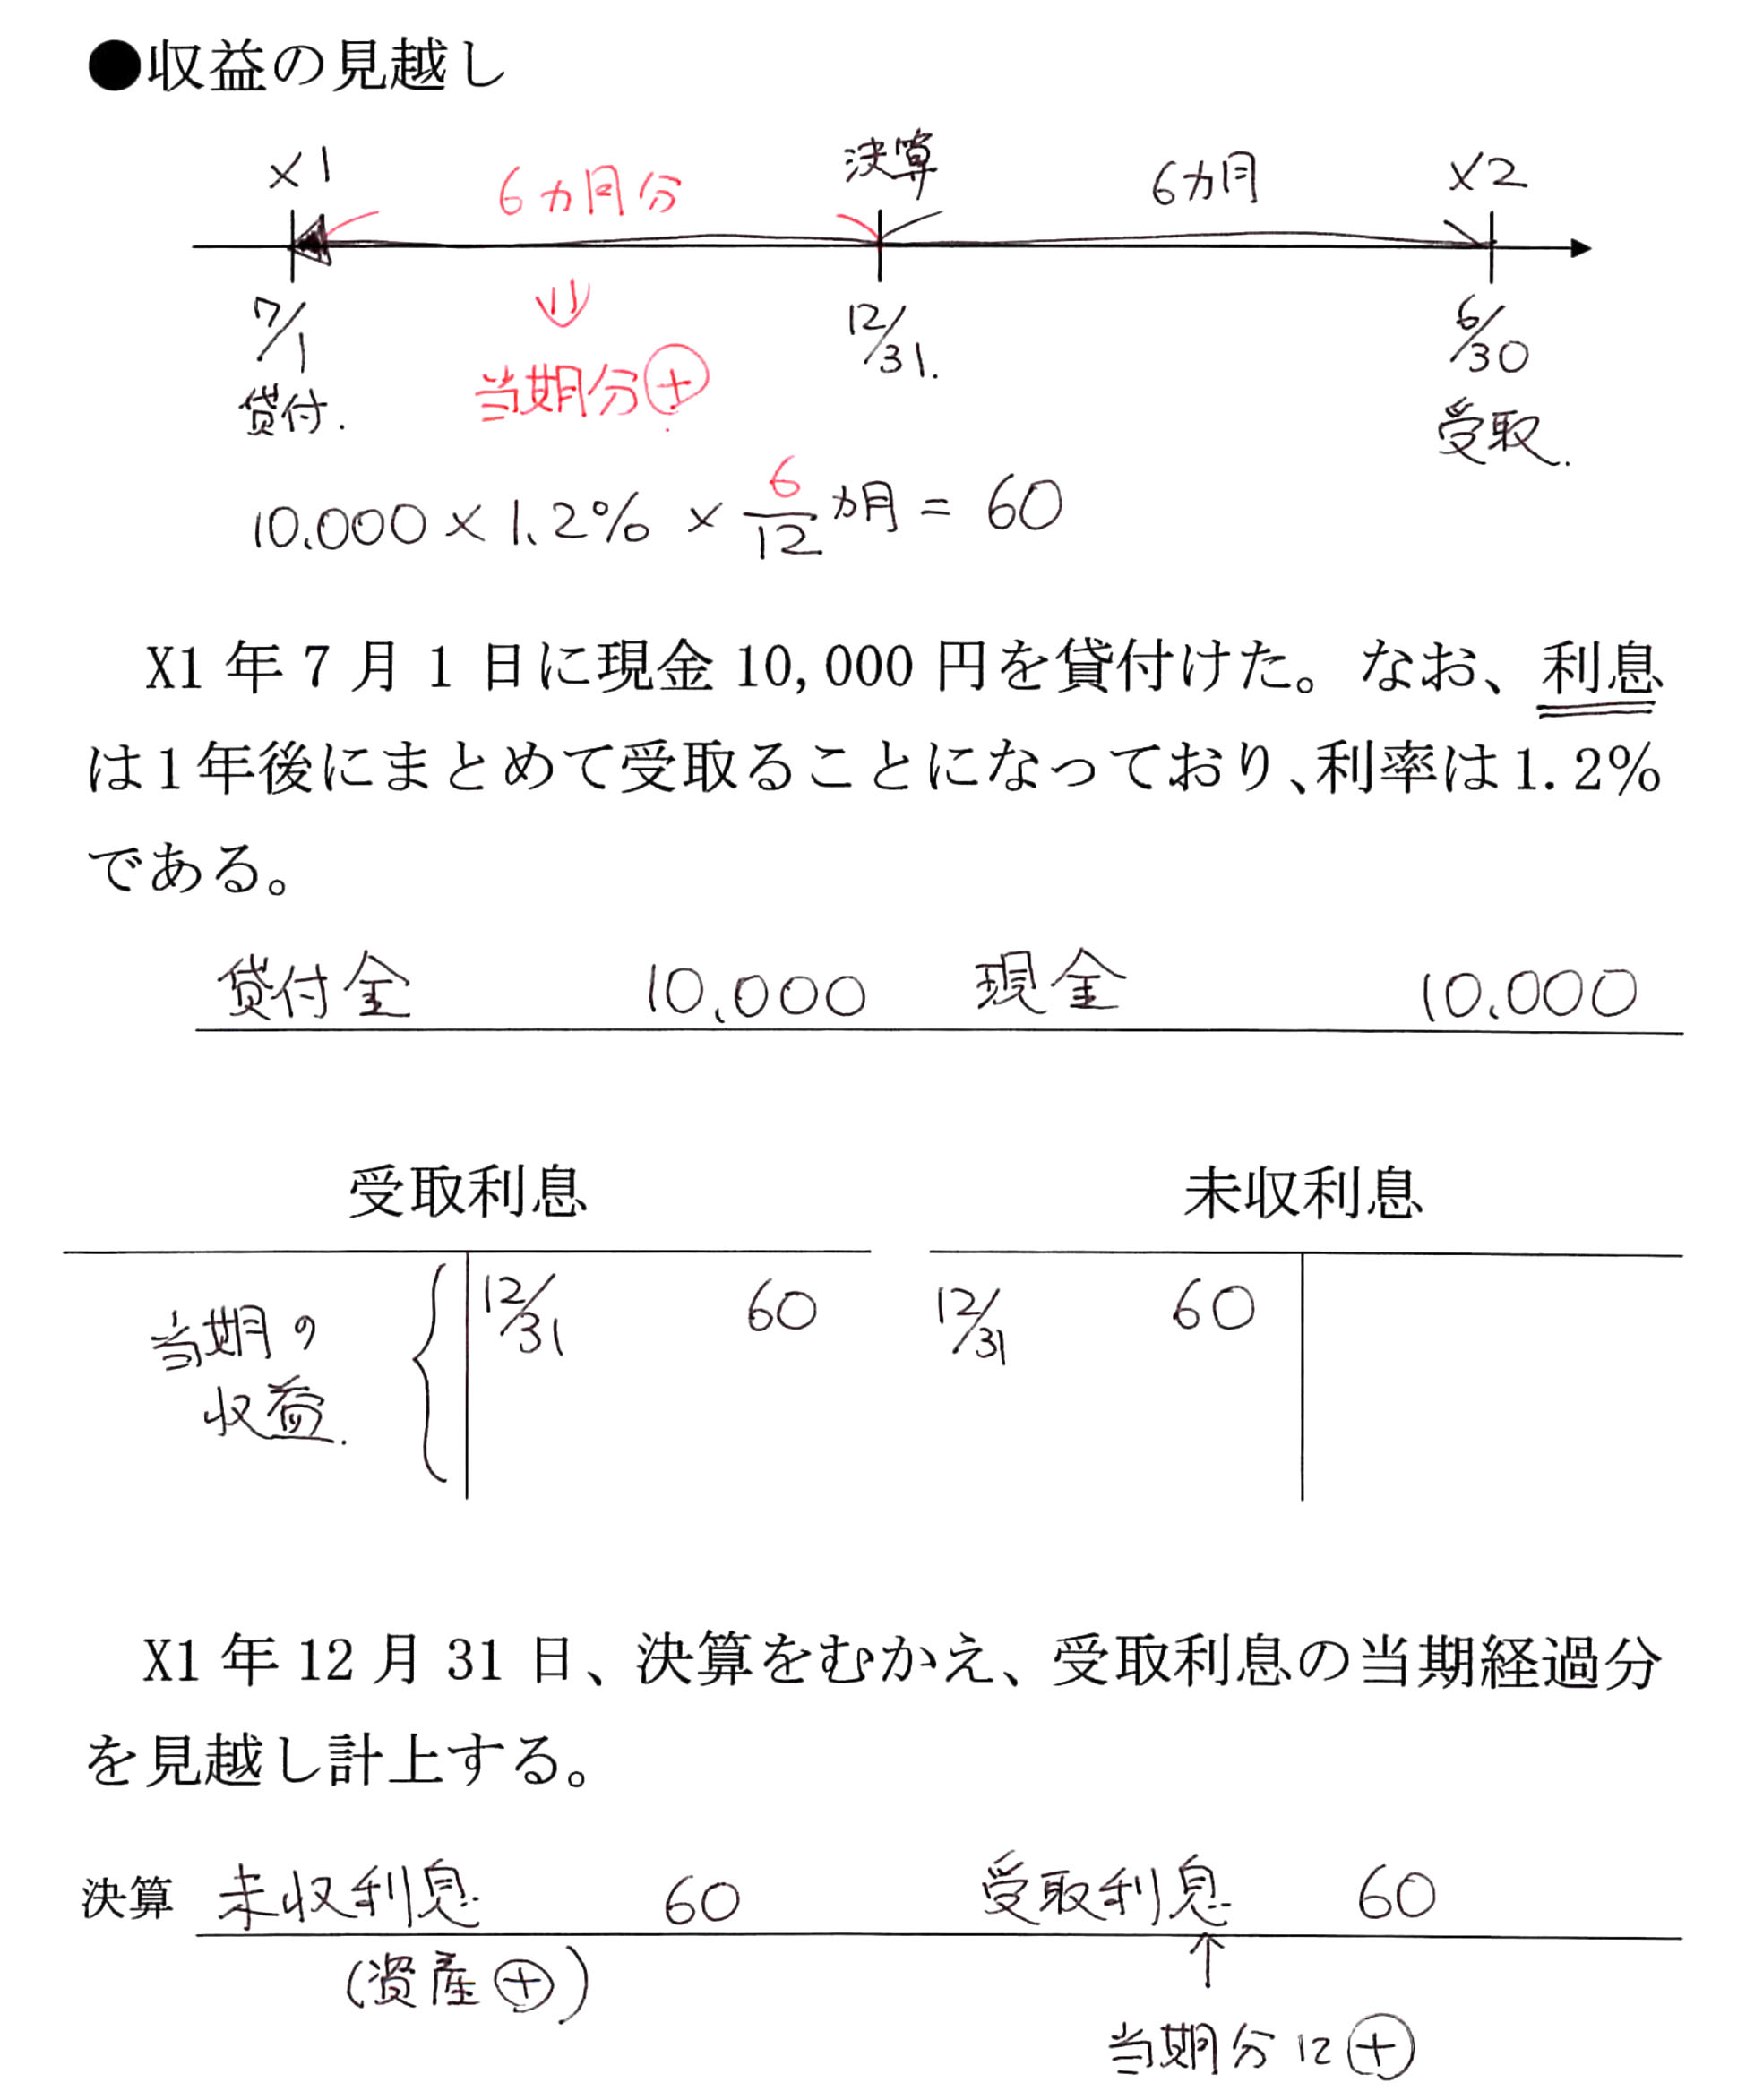 ●収益の見越し
X1 6カ月分 決算 6カ月 X2
7/1 12/31. 6/30
貸付. 当期分⊕ 受取.
10,000×1.2% × 6/12 カ月 = 60
X1年7月1日に現金10,000円を貸付けた。なお、利息
は1年後にまとめて受取ることになっており、利率は1.2%
である。
貸付金 10,000 現金 10,000
受取利息 未収利息
12/31 60 12/31 60
当期の
収益.
X1年12月31日、決算をむかえ、受取利息の当期経過分
を見越し計上する。
決算 未収利息 60 受取利息 60
(資産⊕) ↑
当期分に⊕